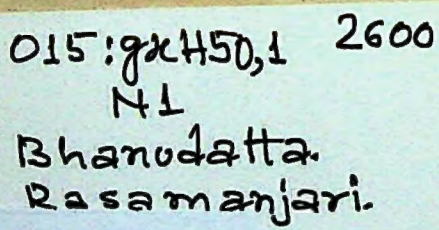 O15:gxH50,1 2600
N1
Bhanudatta.
Rasamanjari.